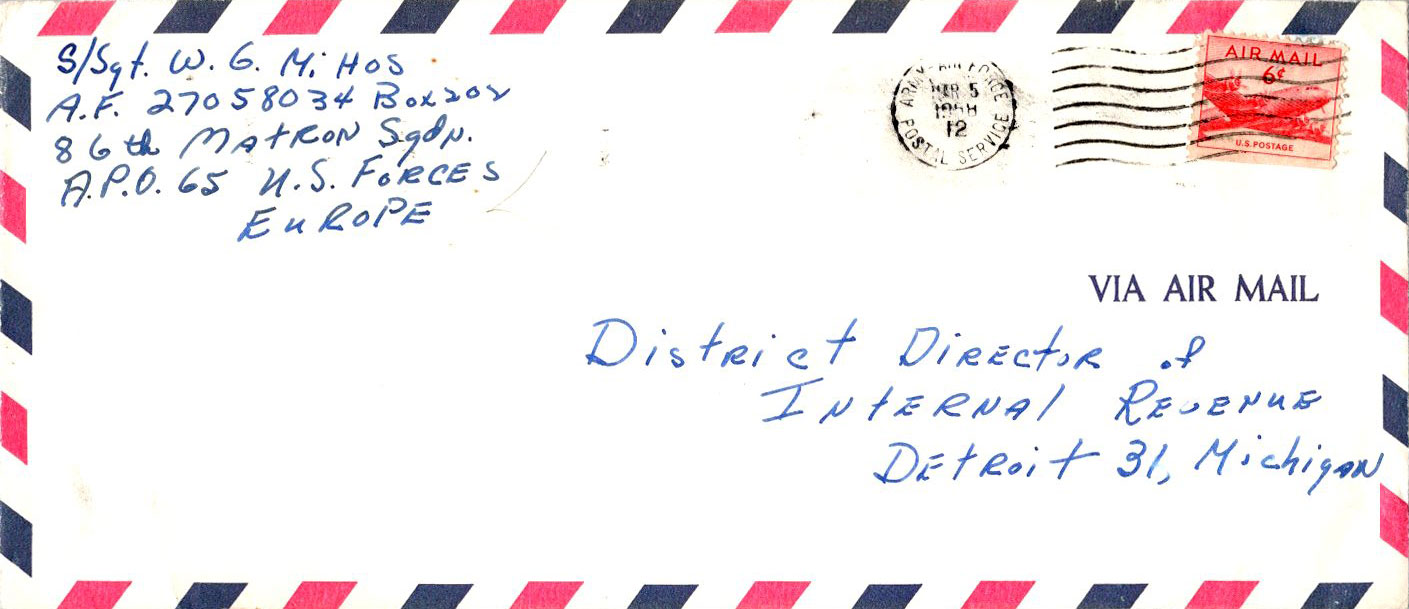 S/Sgt. W. G. Mihos
A.F. 27058034 Box 202
86th MATRON Sqdn.
A.P.O. 65 U.S. FORCES
EUROPE
ARMY-AIR FORCE
POSTAL SERVICE
MAR 5
1958
12
AIR MAIL
6¢
U.S. POSTAGE
VIA AIR MAIL
District Director of
INTERNAL REVENUE
DETROIT 31, Michigan